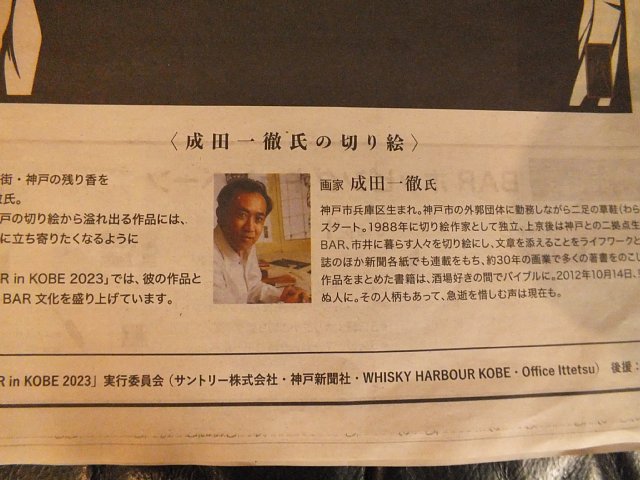 〈成田一徹氏の切り絵〉
街・神戸の残り香を
徹氏。
戸の切り絵から溢れ出る作品には、
に立ち寄りたくなるように
R in KOBE 2023」では、彼の作品と
BAR 文化を盛り上げています。
画家 成田一徹氏
神戸市兵庫区生まれ。神戸市の外郭団体に勤務しながら二足の草鞋(わら
スタート。1988年に切り絵作家として独立、上京後は神戸との二拠点生
BAR、市井に暮らす人々を切り絵にし、文章を添えることをライフワークと
誌のほか新聞各紙でも連載をもち、約30年の画業で多くの著書をのこし
作品をまとめた書籍は、酒場好きの間でバイブルに。2012年10月14日、
ぬ人に。その人柄もあって、急逝を惜しむ声は現在も。
R in KOBE 2023」実行委員会（サントリー株式会社・神戸新聞社・WHISKY HARBOUR KOBE・Office Ittetsu） 後援：